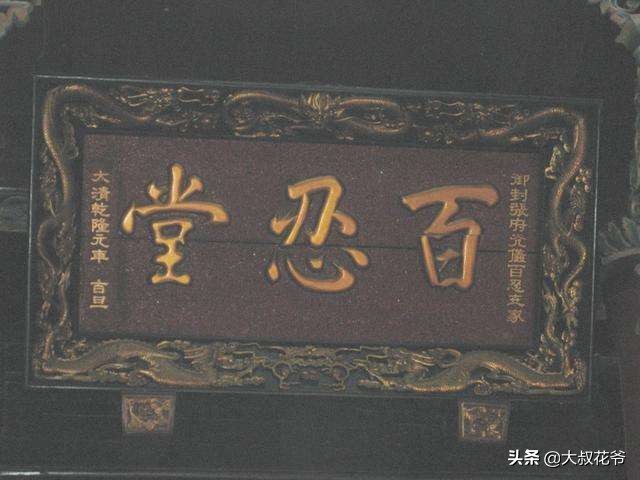 御封張府百忍家
百忍堂
大清乾隆元年 吉旦
头条 @大叔花爷